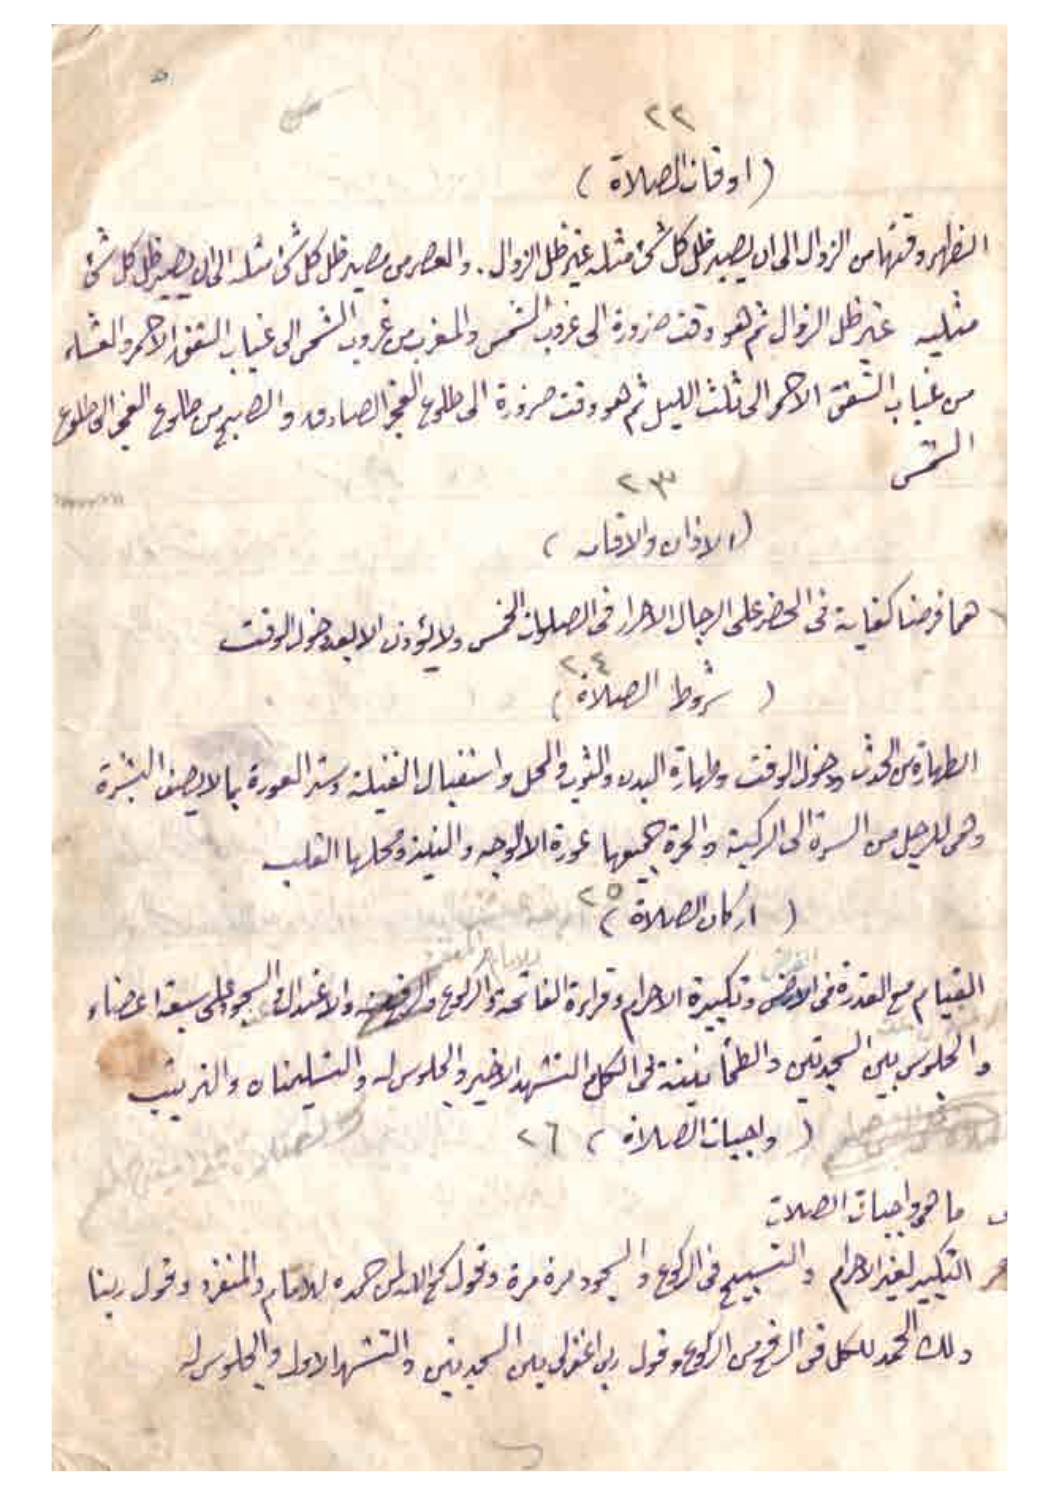 ٢٢
( اوقات الصلاة )
الظهر وقتها من الزوال الى ان يصير ظل كل شئ مثله غير ظل الزوال . والعصر من مصير ظل كل شئ مثله الى ان يصير ظل كل شئ
مثليه غير ظل الزوال ثم هو وقت ضرورة الى غروب الشمس والمغرب من غروب الشمس الى غياب الشفق الاحمر والعشاء
من غياب الشفق الاحمر الى ثلث الليل ثم هو وقت ضرورة الى طلوع الفجر الصادق والصبح من طلوع الفجر الى طلوع
الشمس
٢٣
( الاذان والاقامه )
هما فرضا كفاية فى الحضر على الرجال الاحرار فى الصلوات الخمس ولا يؤذن الا بعد دخول الوقت
٢٤
( شروط الصلاة )
الطهارة من الحدث ودخول الوقت وطهارة البدن والثوب والمحل واستقبال القبلة وستر العورة بما لا يصف البشرة
وهى للرجل من السرة الى الركبة والحرة جميعها عورة الا الوجه والنية ومحلها القلب
٢٥
( اركان الصلاة )
القيام مع القدرة فى الفرض وتكبيرة الاحرام وقراءة الفاتحة والركوع والرفع منه والاعتدال السجود على سبعة اعضاء
والجلوس بين السجدتين والطمأنينة فى الكل التشهد الاخير والجلوس له والتسليمتان والترتيب
( واجبات الصلاة ) ٢٦
س ما هى واجبات الصلات
التكبير لغير الاحرام والتسبيح فى الركوع والسجود مرة مرة وقول سمع الله لمن حمده للامام والمنفرد وقول ربنا
ولك الحمد للكل فى الرفع من الركوع وقول رب اغفر لى بين السجدتين والتشهد الاول والجلوس له